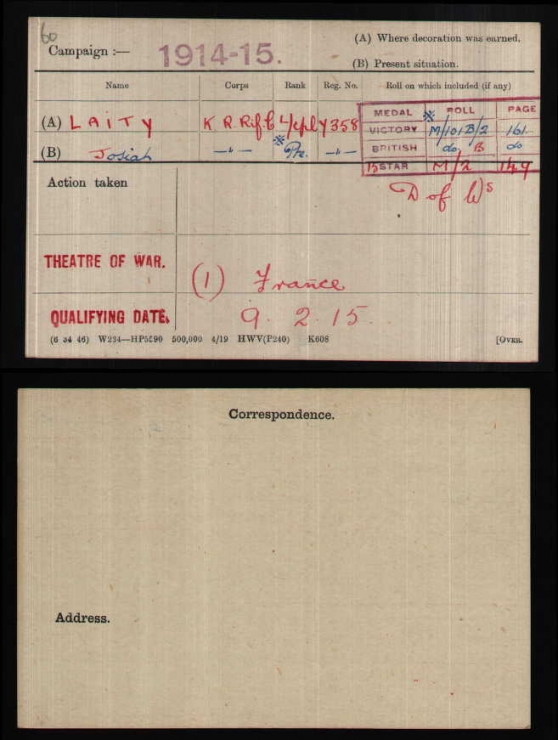 60
Campaign :— 1914-15.
(A) Where decoration was earned.
(B) Present situation.
Name Corps Rank Reg. No. Roll on which included (if any)
MEDAL * ROLL PAGE
(A) LAITY K. R. Rif. C L/cpl Y358
VICTORY M/101B/2 161.
(B) Josiah —"— * Pte. —"—
BRITISH do B do
15 STAR M/2 147
Action taken
D of Ws
THEATRE OF WAR.
(1) France
QUALIFYING DATE.
9. 2. 15.
(6 34 46) W234—HP5590 500,000 4/19 HWV(P240) K608 [OVER.
Correspondence.
Address.